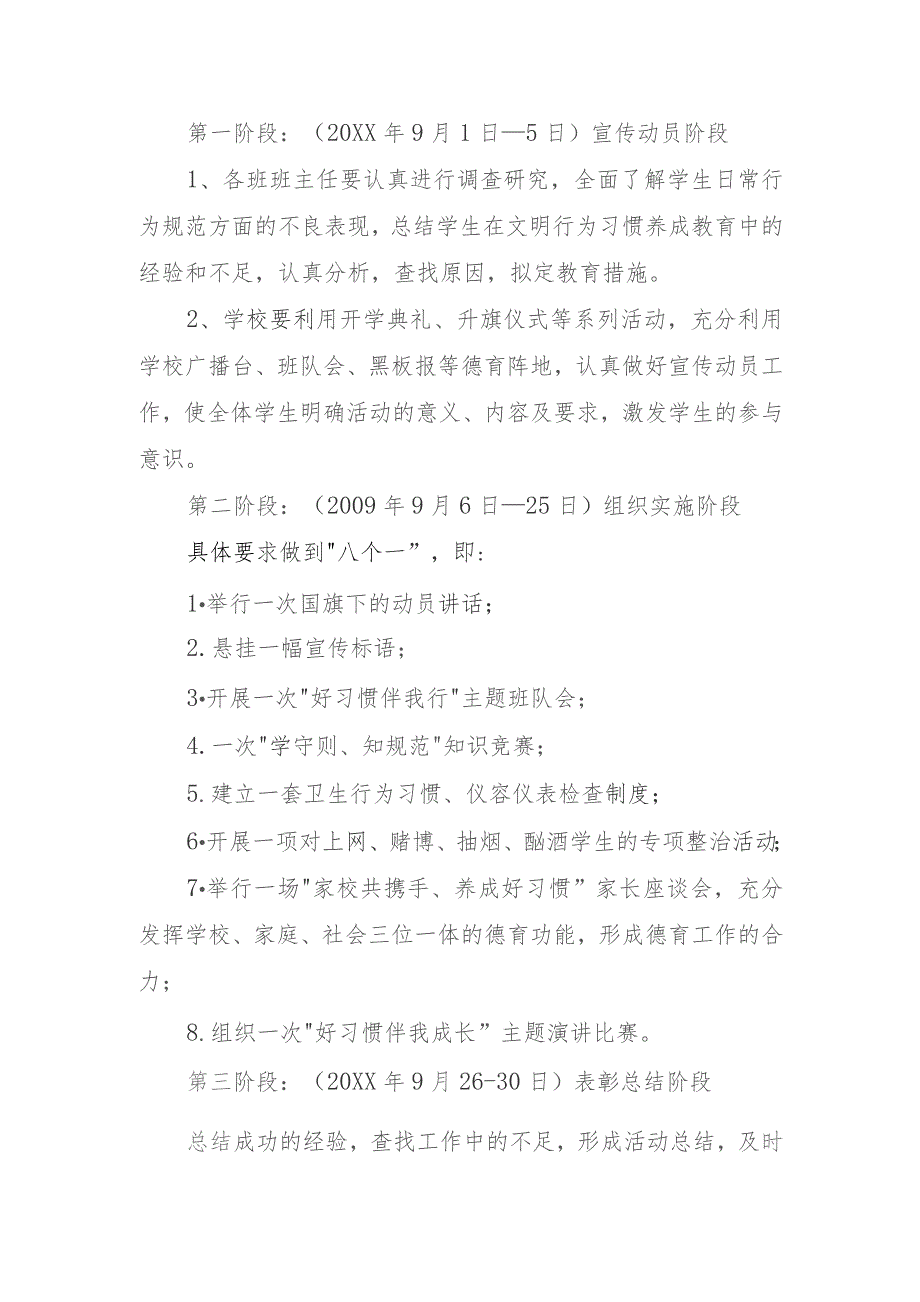 第一阶段：（20XX 年 9 月 1 日—5 日）宣传动员阶段
1、各班班主任要认真进行调查研究，全面了解学生日常行
为规范方面的不良表现，总结学生在文明行为习惯养成教育中的
经验和不足，认真分析，查找原因，拟定教育措施。
2、学校要利用开学典礼、升旗仪式等系列活动，充分利用
学校广播台、班队会、黑板报等德育阵地，认真做好宣传动员工
作，使全体学生明确活动的意义、内容及要求，激发学生的参与
意识。
第二阶段：（2009 年 9 月 6 日—25 日）组织实施阶段
具体要求做到"八个一”，即:
1•举行一次国旗下的动员讲话；
2.悬挂一幅宣传标语；
3•开展一次"好习惯伴我行"主题班队会；
4.一次"学守则、知规范"知识竞赛；
5.建立一套卫生行为习惯、仪容仪表检查制度；
6•开展一项对上网、赌博、抽烟、酗酒学生的专项整治活动；
7•举行一场"家校共携手、养成好习惯”家长座谈会，充分
发挥学校、家庭、社会三位一体的德育功能，形成德育工作的合
力；
8.组织一次"好习惯伴我成长”主题演讲比赛。
第三阶段：（20XX 年 9 月 26-30 日）表彰总结阶段
总结成功的经验，查找工作中的不足，形成活动总结，及时